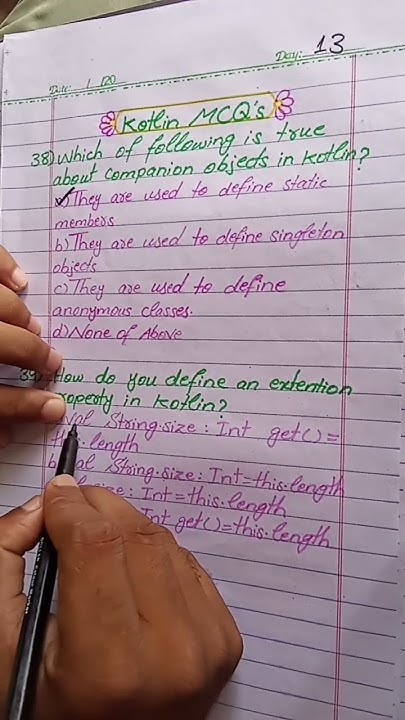 Day: 13
Date: / 120
Kotlin MCQ's
38) Which of following is true
about companion objects in Kotlin?
They are used to define static
members
b) They are used to define singleton
objects
c) They are used to define
anonymous classes.
d) None of Above
39 How do you define an extention
roperty in Kotlin?
Val String.size : Int get() =
this.length
b val String.size : Int = this.length
size : Int = this.length
Int get() = this.length